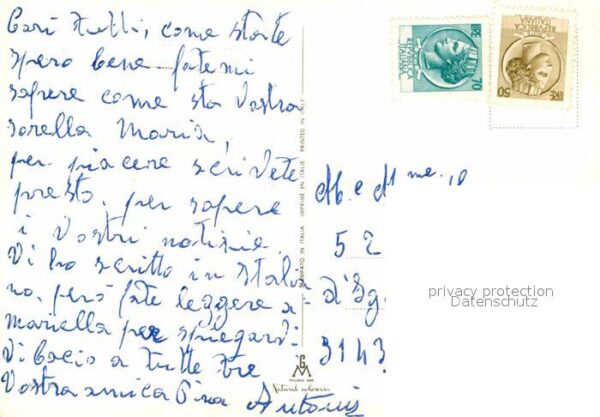 Cari tutti, come state
spero bene fatemi
sapere come sta Vostra
sorella Maria,
per piacere scrivete
presto. per sapere
i Vostri notisie
Vi ho scritto in Italia
no, però fate leggere a
mariella per spiegarvi
Vi bacio a tutte tre
Vostra amica Pina Antonis
REPVBBLICA
ITALIANA
70
LIRE
REPVBBLICA
ITALIANA
50
LIRE
STAMPATO IN ITALIA IMPRIMÉ EN ITALIE PRINTED IN ITALY
M. e Mme.
privacy protection
Datenschutz
3143
MILANO
Natural colours